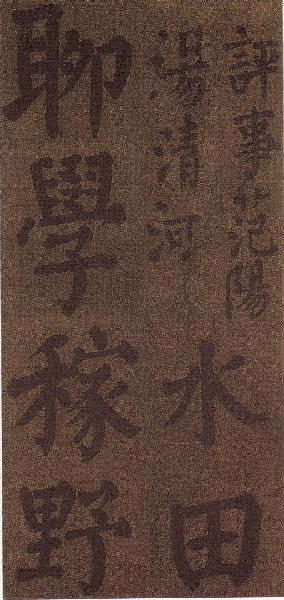 評事范陽
湯清河
水田
聊學稼野